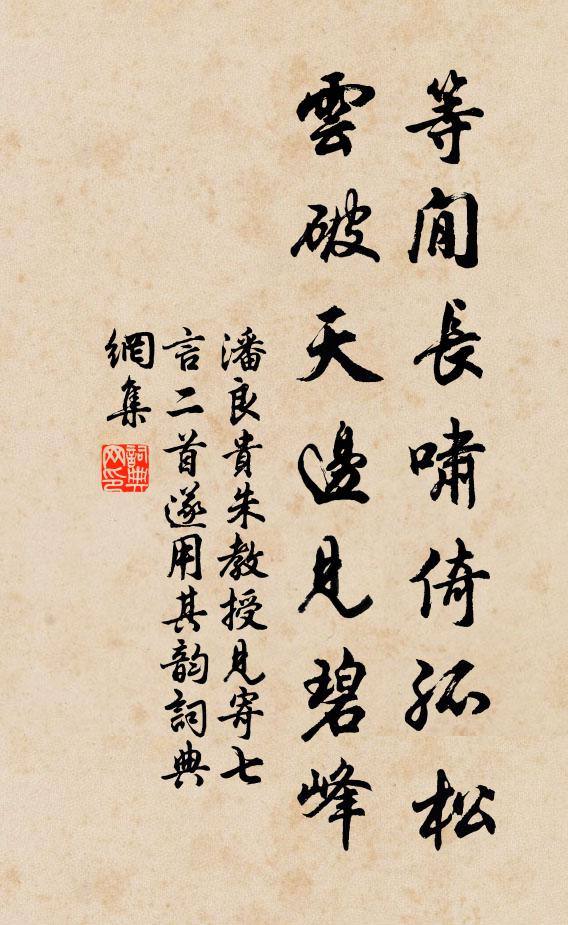 等閒長嘯倚孤松
雲破天邊見碧峰
潘良貴朱教授見寄七
言二首遂用其韵詞典
網集
詞典
网印